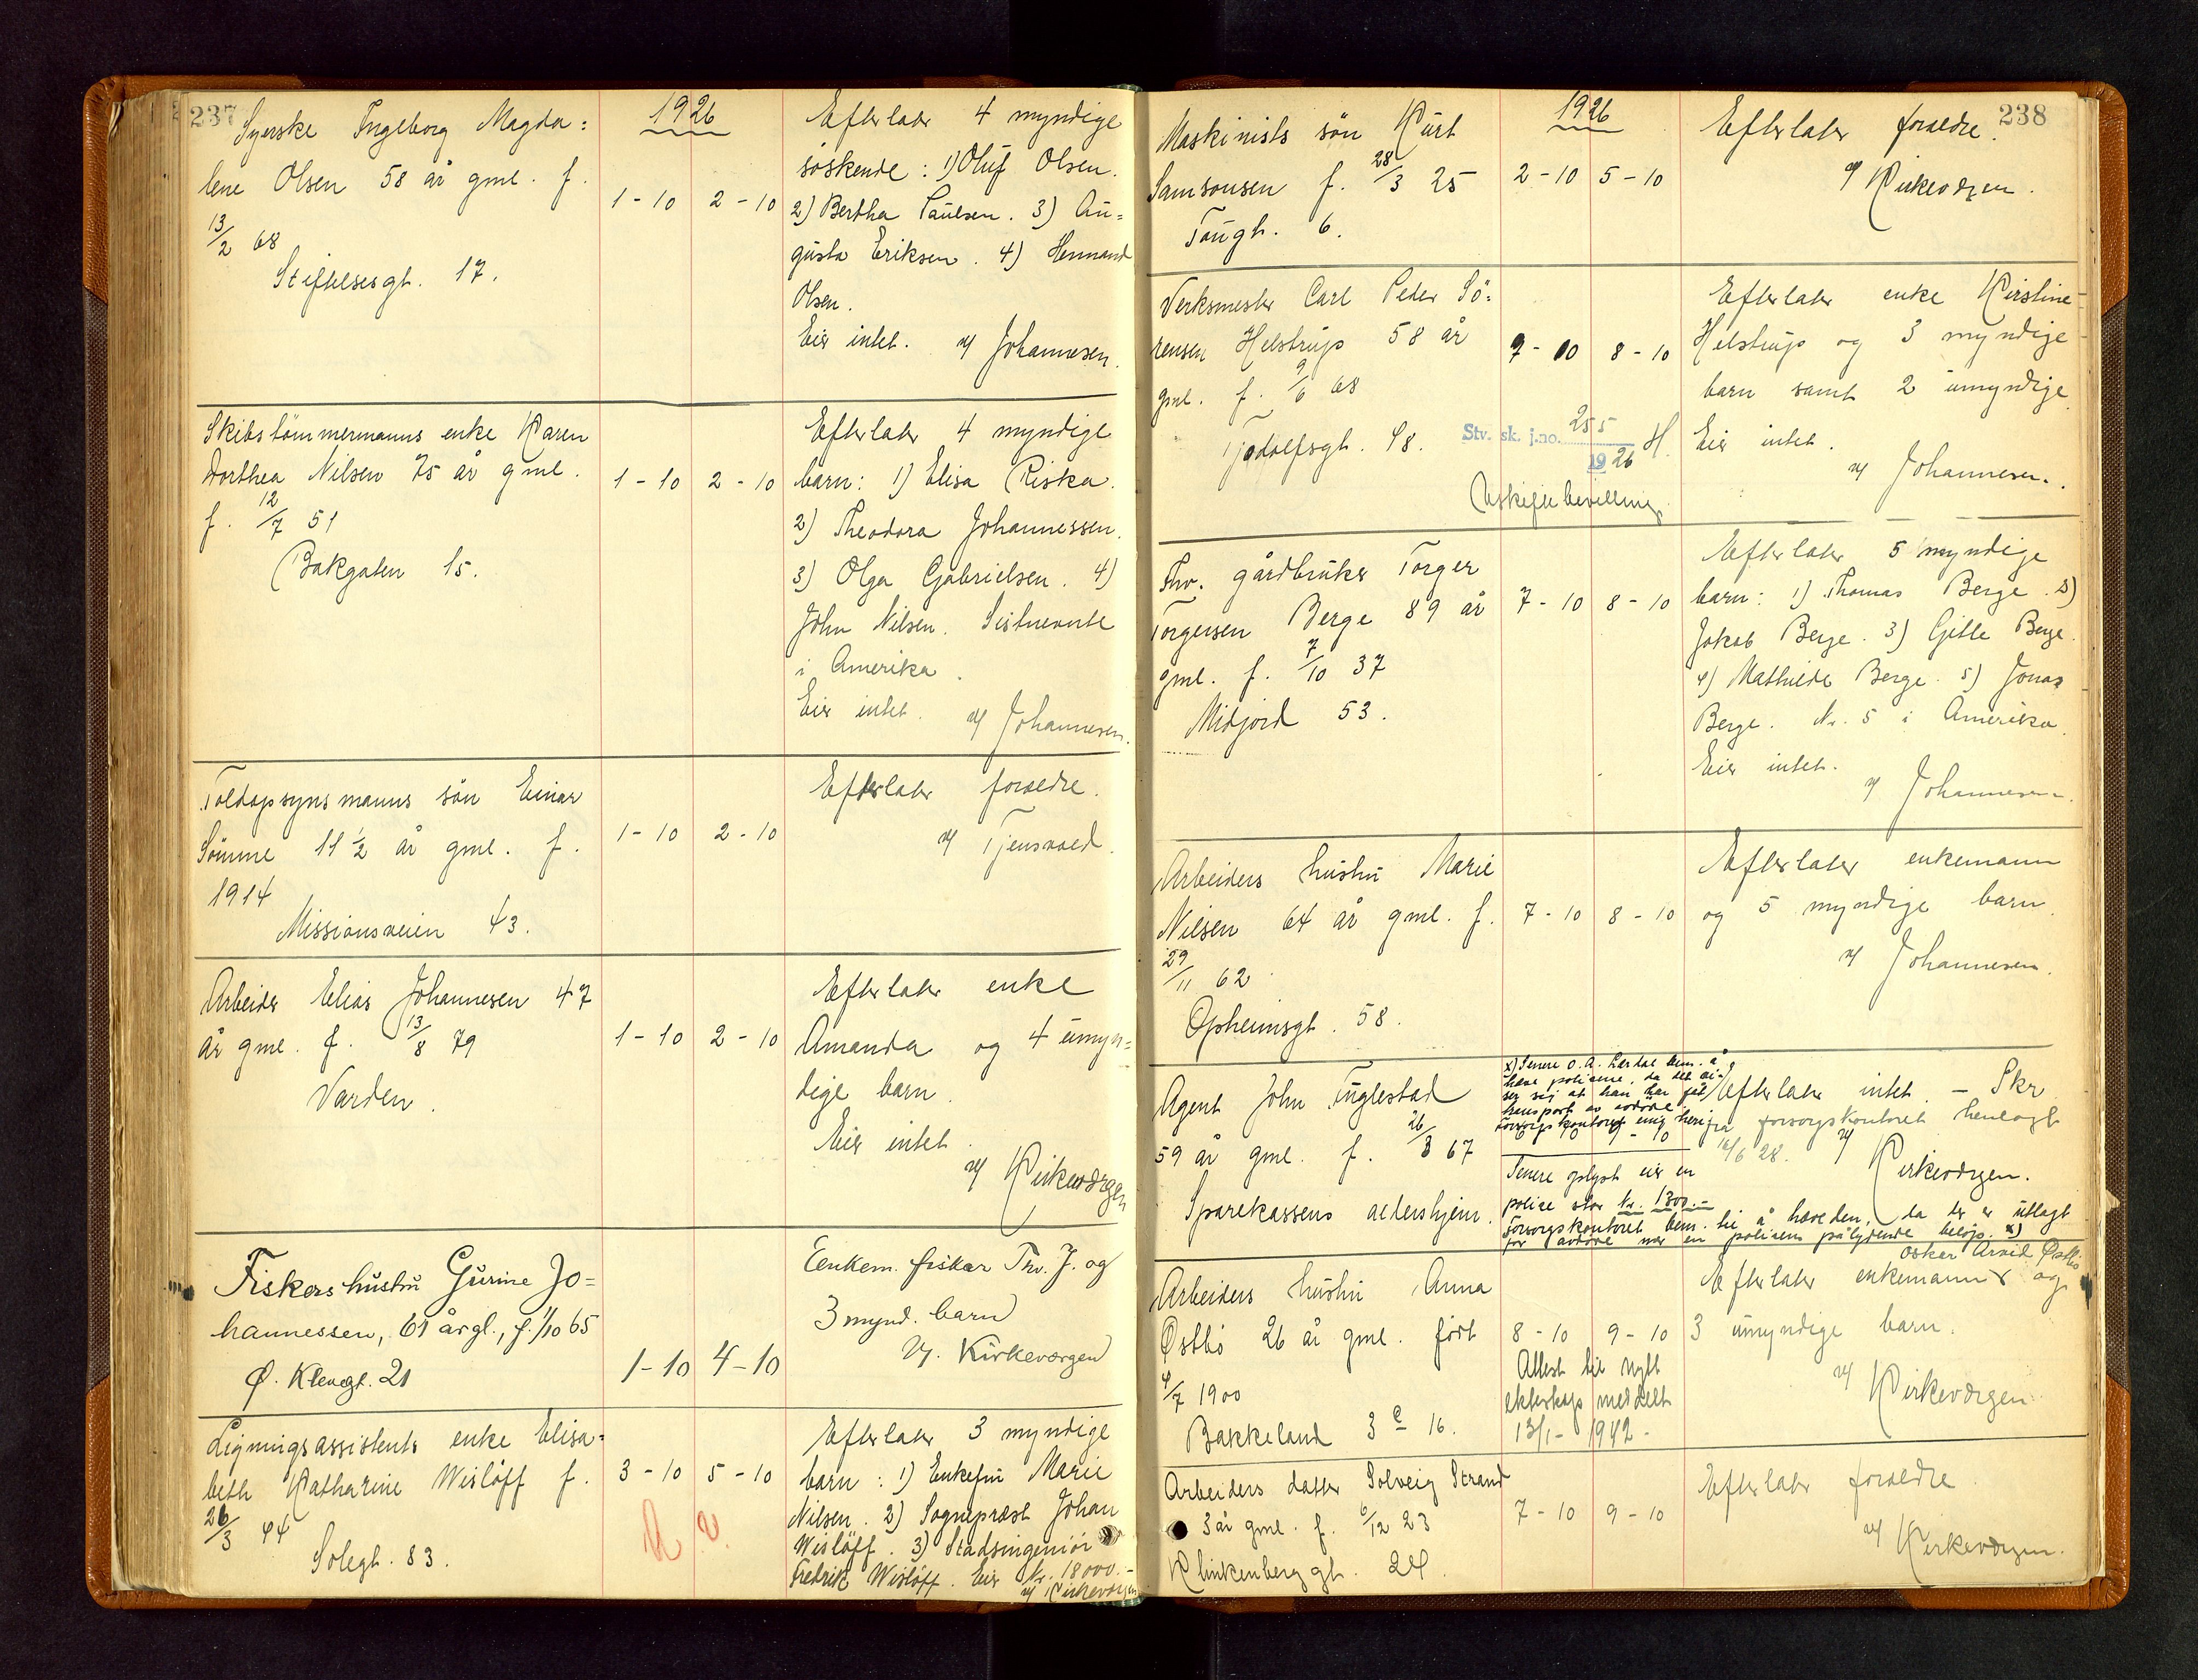 237
1926
Syerske Ingeborg Magda=
lene Olsen 58 år gml. f.
13/2 68
Stiftelsesgt. 17.
1-10 2-10
Efterlater 4 myndige
søskende: 1) Oluf Olsen.
2) Bertha Paulsen. 3) Au=
gusta Eriksen. 4) Hermand
Olsen.
Eier intet. Johannesen.
Skibstömmermanns enke Karen
Dorthea Nilsen 75 år gml.
f. 12/7 51
Bakgaten 15.
1-10 2-10
Efterlater 4 myndige
barn: 1) Elisa Riska.
2) Theodora Johannessen.
3) Olga Gabrielsen. 4)
John Nilsen. Sistnevnte
i Amerika.
Eier intet. Johannesen.
Toldopsynsmanns sön Einar
Sömme 11 1/2 år gml. f.
1914
Missionsveien 43.
1-10 2-10
Efterlater foreldre.
Tjensvold.
Arbeider Elias Johannesen 47
år gml. f. 13/8 79
Varden.
1-10 2-10
Efterlater enke
Amanda og 4 umyn=
dige barn.
Eier intet.
Kirkevergen
Fiskers hustru Gurine Jo=
hannessen, 61 år gl., f. 1/10 65
Ø. Klevegt. 21
1-10 4-10
Eenkem. fisker Thv. J. og
3 mynd. barn
Kirkevergen
Ligningsassistents enke Elisa=
beth Katharine Wislöff f.
26/3 44
Solegt. 83.
3-10 5-10
Efterlater 3 myndige
barn: 1) Enkefru Marie
Nilsen. 2) Sogneprest Johan
Wislöff. 3) Stadsingeniör
Fredrik Wislöff. Eier Kr. 18000.-
Kirkevergen
238
1926
Maskinists sön Kurt
Samsonsen f. 28/3 25
Taugt. 6.
2-10 5-10
Efterlater foreldre.
Kirkevergen.
Verksmester Carl Peder Sö=
rensen Helstrup 58 år
gml. f. 9/6 68
Tjodolfsgt. 48.
7-10 8-10
Stv. sk. j.no. 255 H.
1926
Uskiftebevilling.
Efterlater enke Kirstine
Helstrup og 3 myndige
barn samt 2 umyndige
Eier intet.
Johannesen.
Fhv. gårdbruker Torger
Torgersen Berge 89 år
gml. f. 7/10 37
Midjord 53.
7-10 8-10
Efterlater 5 myndige
barn: 1) Thomas Berge. 2)
Jakob Berge. 3) Gitle Berge.
4) Mathilde Berge. 5) Jonas
Berge. Nr. 5 i Amerika.
Eier intet.
Johannesen.
Arbeiders hustru Marie
Nilsen 64 år gml. f.
29/11 62
Opheimsgt. 58.
7-10 8-10
Efterlater enkemann
og 5 myndige barn.
Johannesen.
Agent John Fuglestad
59 år gml. f. 26/8 67
Sparekassens aldershjem.
x) Senere O. A. bem. å
heve policene, da det vi-
ser sig at han har fåt
transport av avdöde.
forsorgskontoret enig heri
Senere oplyst eier en
police stor kr. 1300.-
Forsorgskontoret bem. til å heve den, da der er utlagt
for avdöde mer en policens pålydende belöp. x)
Efterlater intet. - Skr.
fra forsorgskontoret henlagt
/6 28. Kirkevergen.
Arbeiders hustru Anna
Östbö 26 år gml. födt
4/7 1900
Bakkeland 3 e 16.
8-10 9-10
Attest til nytt
ekteskap meddelt
13/1- 1942-
Oskar Arvid Östbö
Efterlater enkemann x og
3 umyndige barn.
Kirkevergen
Arbeiders datter Solveig Strand
3 år gml. f. 6/12 23
Klinkenberggt. 24.
7-10 9-10
Efterlater foreldre
Kirkevergen.